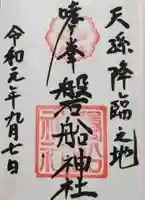 天孫降臨之地
哮峯
磐船神社
令和元年九月七日